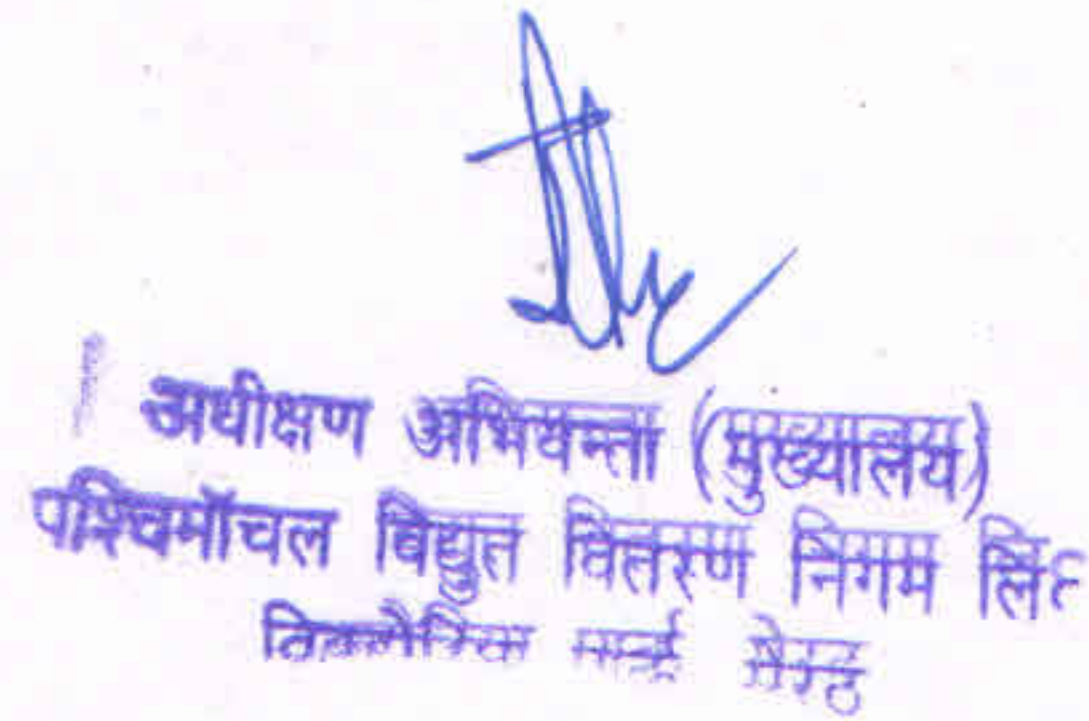 अधीक्षण अभियन्ता (मुख्यालय)
पश्चिमॉचल विद्युत वितरण निगम लि
मेरठ